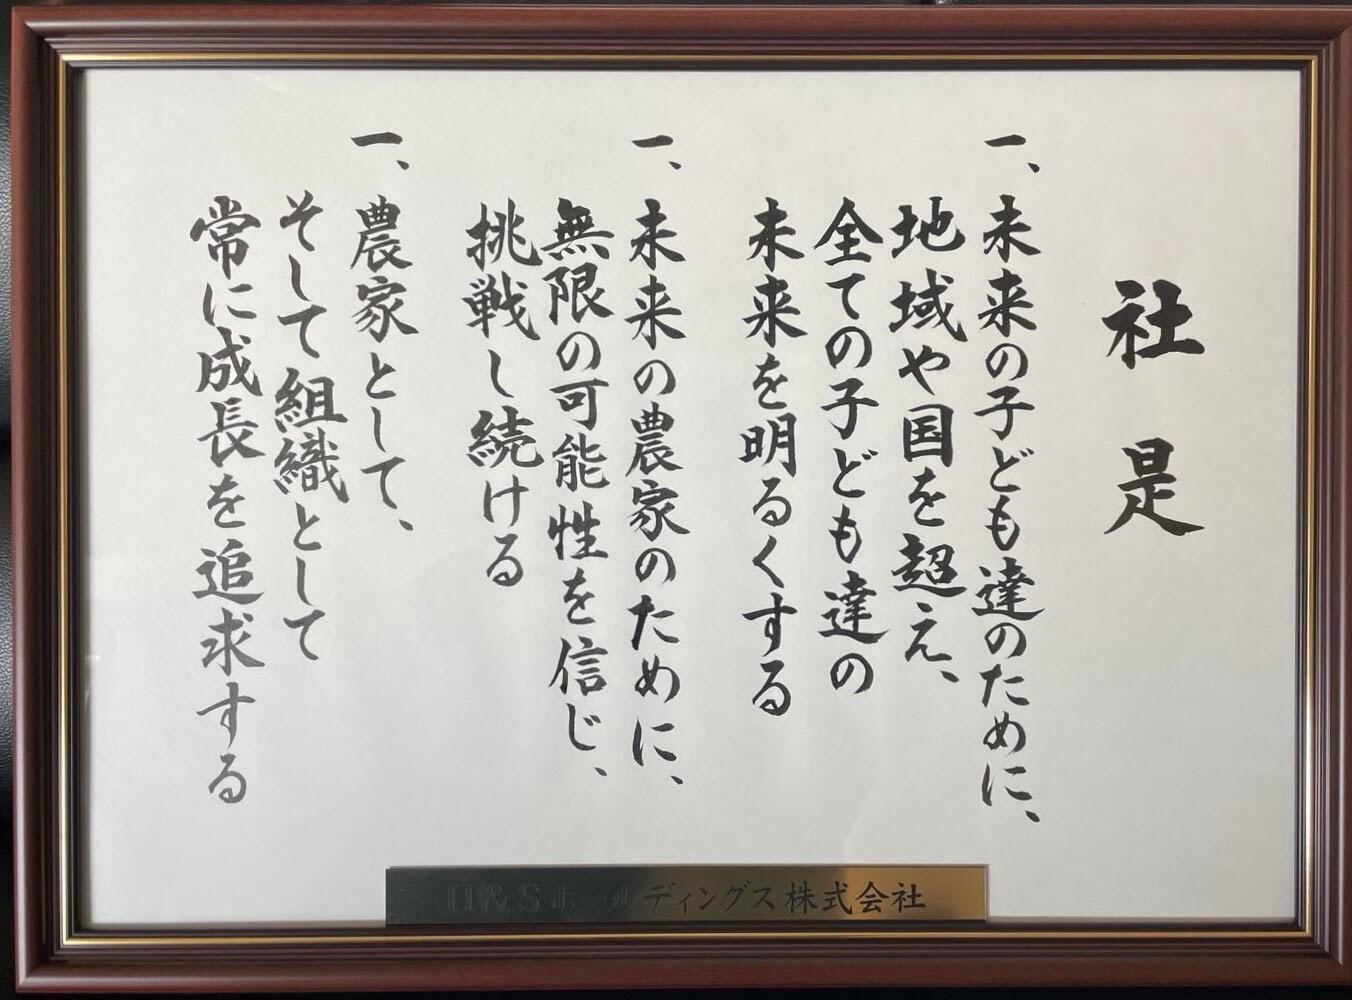 社是
一、未来の子ども達のために、
地域や国を超え、
全ての子ども達の
未来を明るくする
一、未来の農家のために、
無限の可能性を信じ、
挑戦し続ける
一、農家として、
そして組織として
常に成長を追求する
H&Sホールディングス株式会社